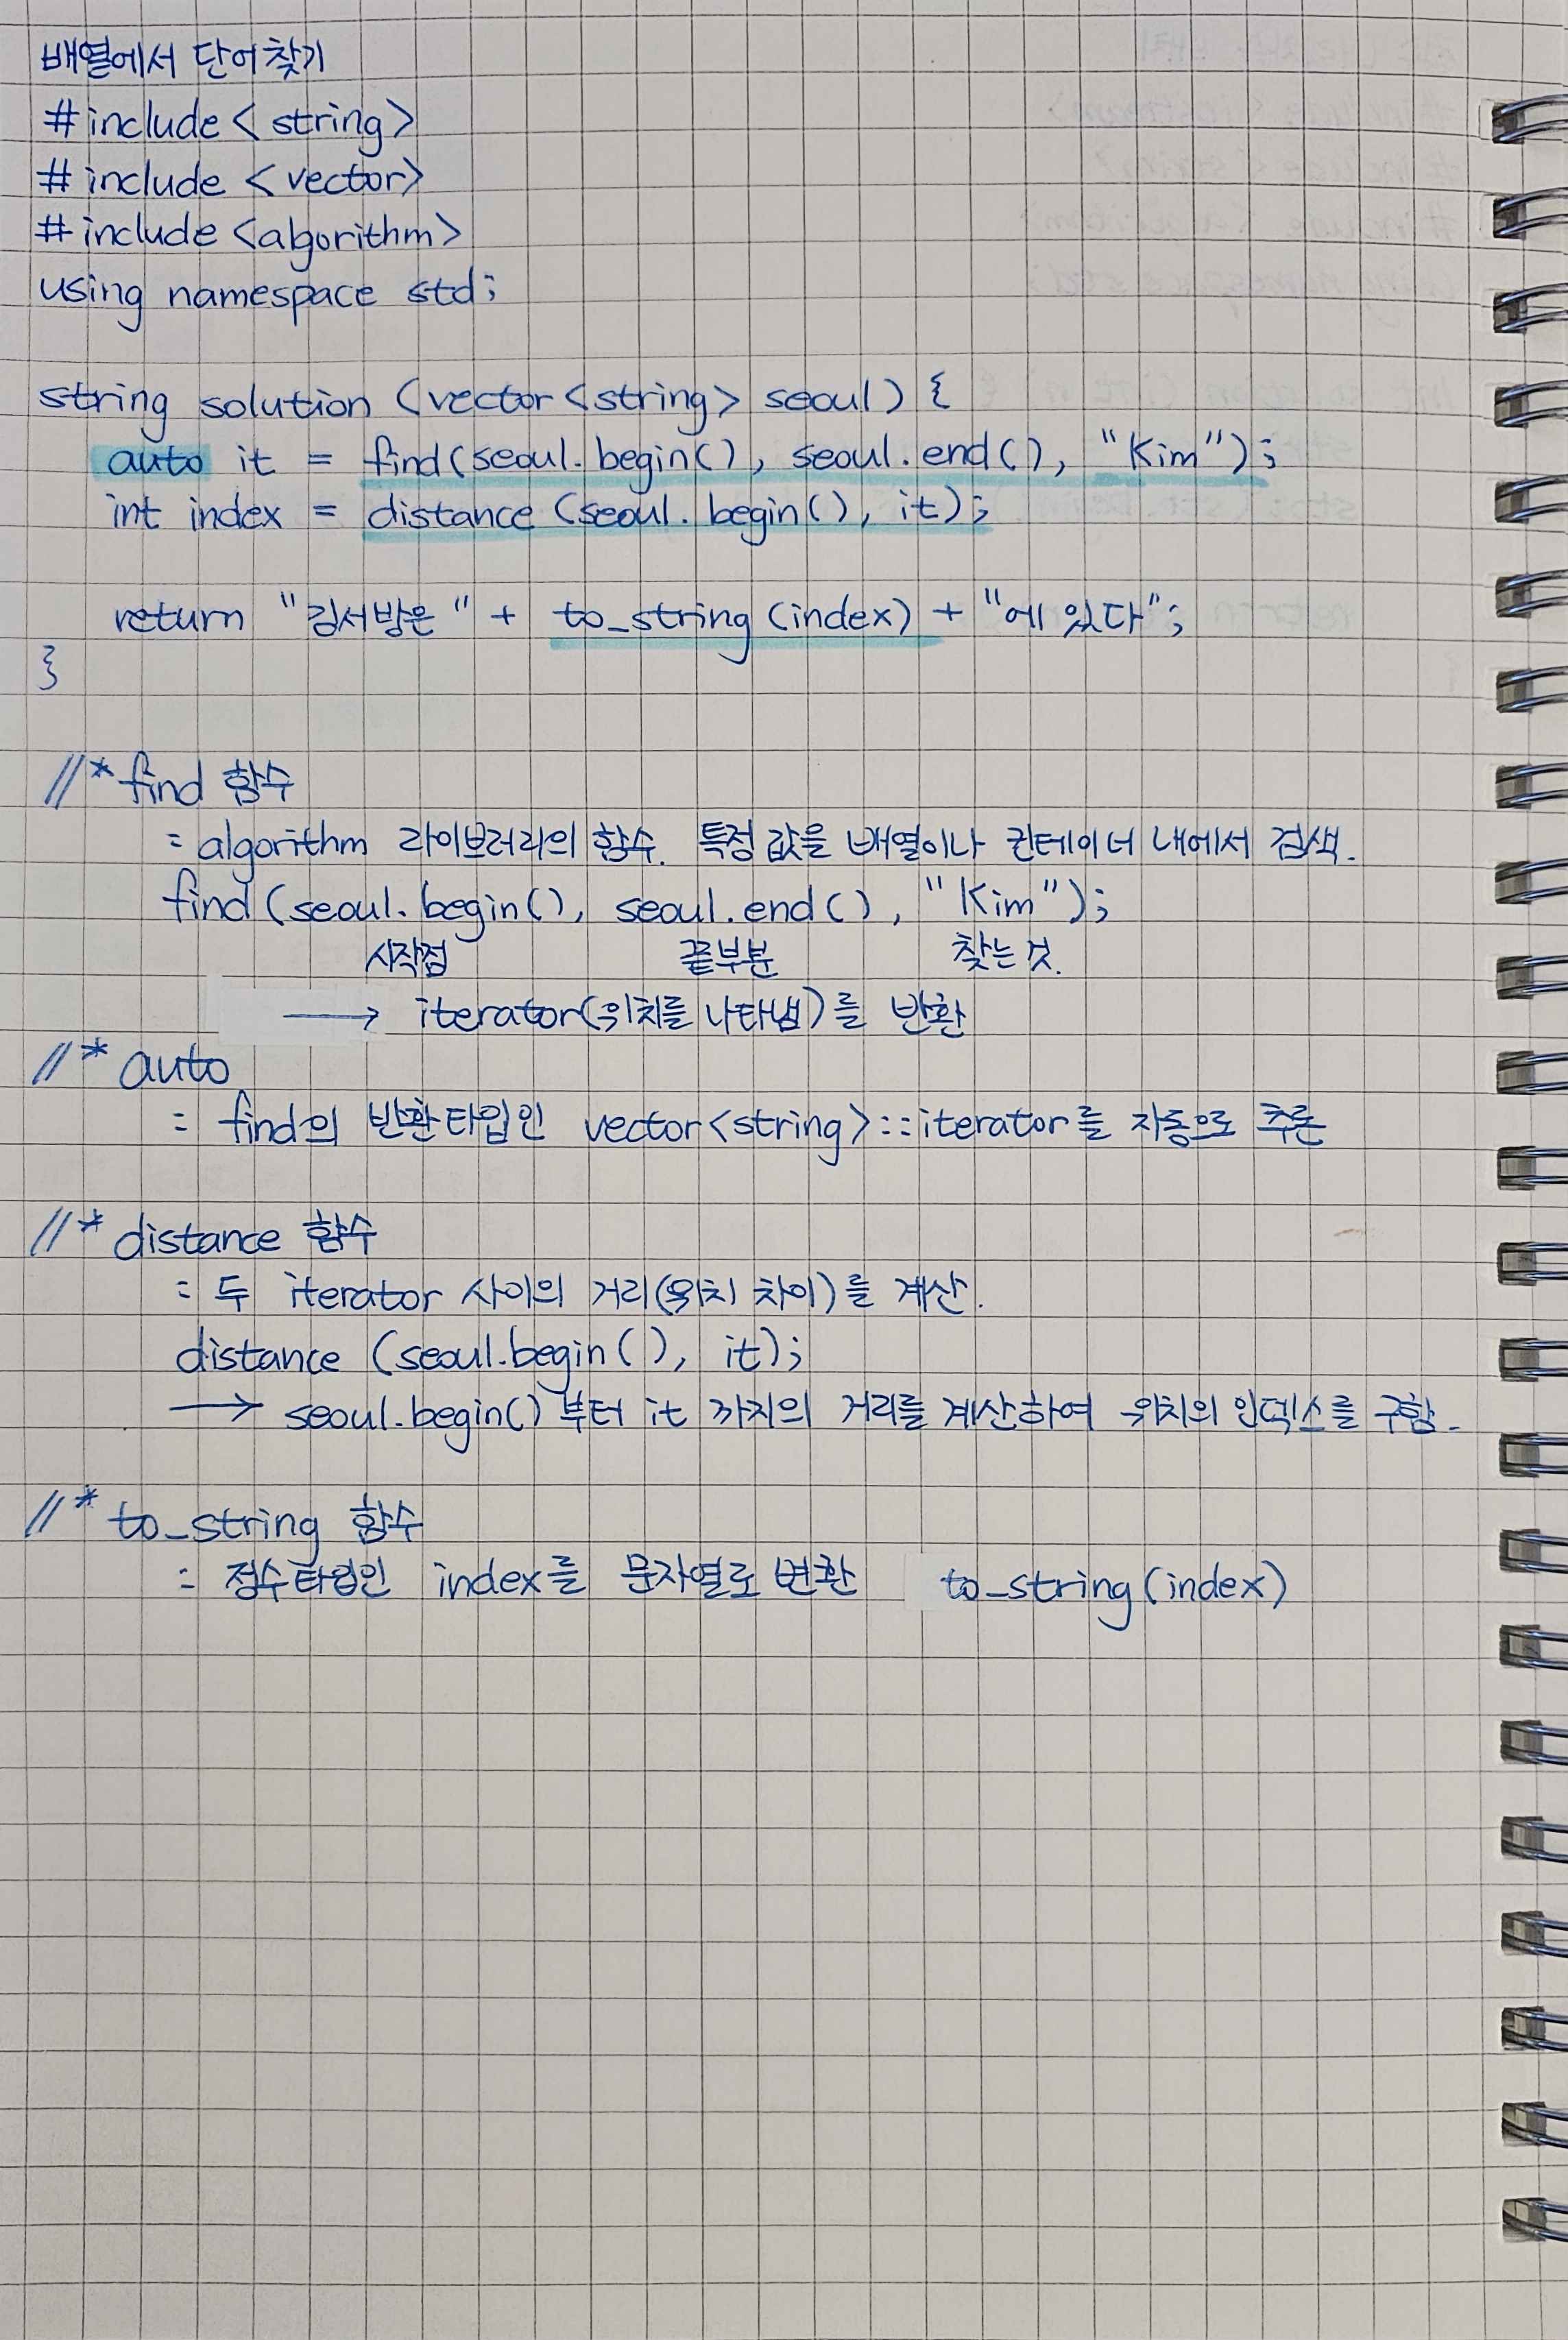 배열에서 단어 찾기
#include <string>
#include <vector>
#include <algorithm>
using namespace std;
string solution (vector<string> seoul) {
auto it = find(seoul.begin(), seoul.end(), "Kim");
int index = distance (seoul.begin(), it);
return "김서방은 " + to_string (index) + "에 있다";
}
//* find 함수
= algorithm 라이브러리의 함수. 특정 값을 배열이나 컨테이너 내에서 검색.
find (seoul.begin(), seoul.end(), "Kim");
시작점 끝부분 찾는 것.
→ iterator(위치를 나타냄)를 반환
//* auto
= find의 반환타입인 vector<string>::iterator를 자동으로 추론
//* distance 함수
= 두 iterator 사이의 거리(위치 차이)를 계산.
distance (seoul.begin(), it);
→ seoul.begin() 부터 it 까지의 거리를 계산하여 위치의 인덱스를 구함.
//* to_string 함수
= 정수타입인 index를 문자열로 변환 to_string(index)